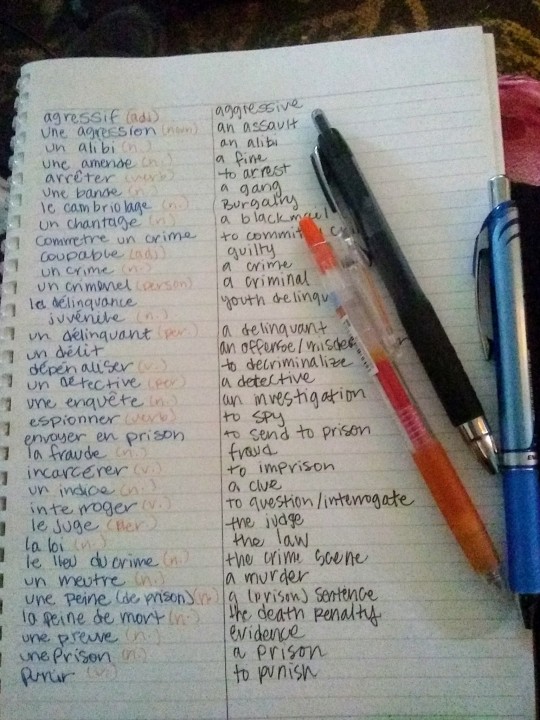 agressif (adj) aggressive
une agression (noun) an assault
un alibi (n.) an alibi
une amende (n.) a fine
arrêter (verb) to arrest
une bande (n.) a gang
le cambriolage (n.) Burgalry
un chantage (n.) a blackmail
commettre un crime to commit
coupable (adj) guilty
un crime (n.) a crime
un criminel (person) a criminal
la délinquance youth delinqu
juvénile (n.)
un délinquant (per.) a delinquant
un délit an offense/misde
dépénaliser (v.) to decriminalize
un détective (per) a detective
une enquête (n.) an investigation
espionner (verb) to spy
envoyer en prison to send to prison
la fraude (n.) fraud
incarcérer (v.) to imprison
un indice (n.) a clue
interroger (v.) to question/interrogate
le juge (per.) the judge
la loi (n.) the law
le lieu du crime (n.) the crime scene
un meutre (n.) a murder
une peine (de prison) (n.) a (prison) sentence
la peine de mort (n.) the death penalty
une preuve (n.) evidence
une prison (n.) a prison
punir (v.) to punish